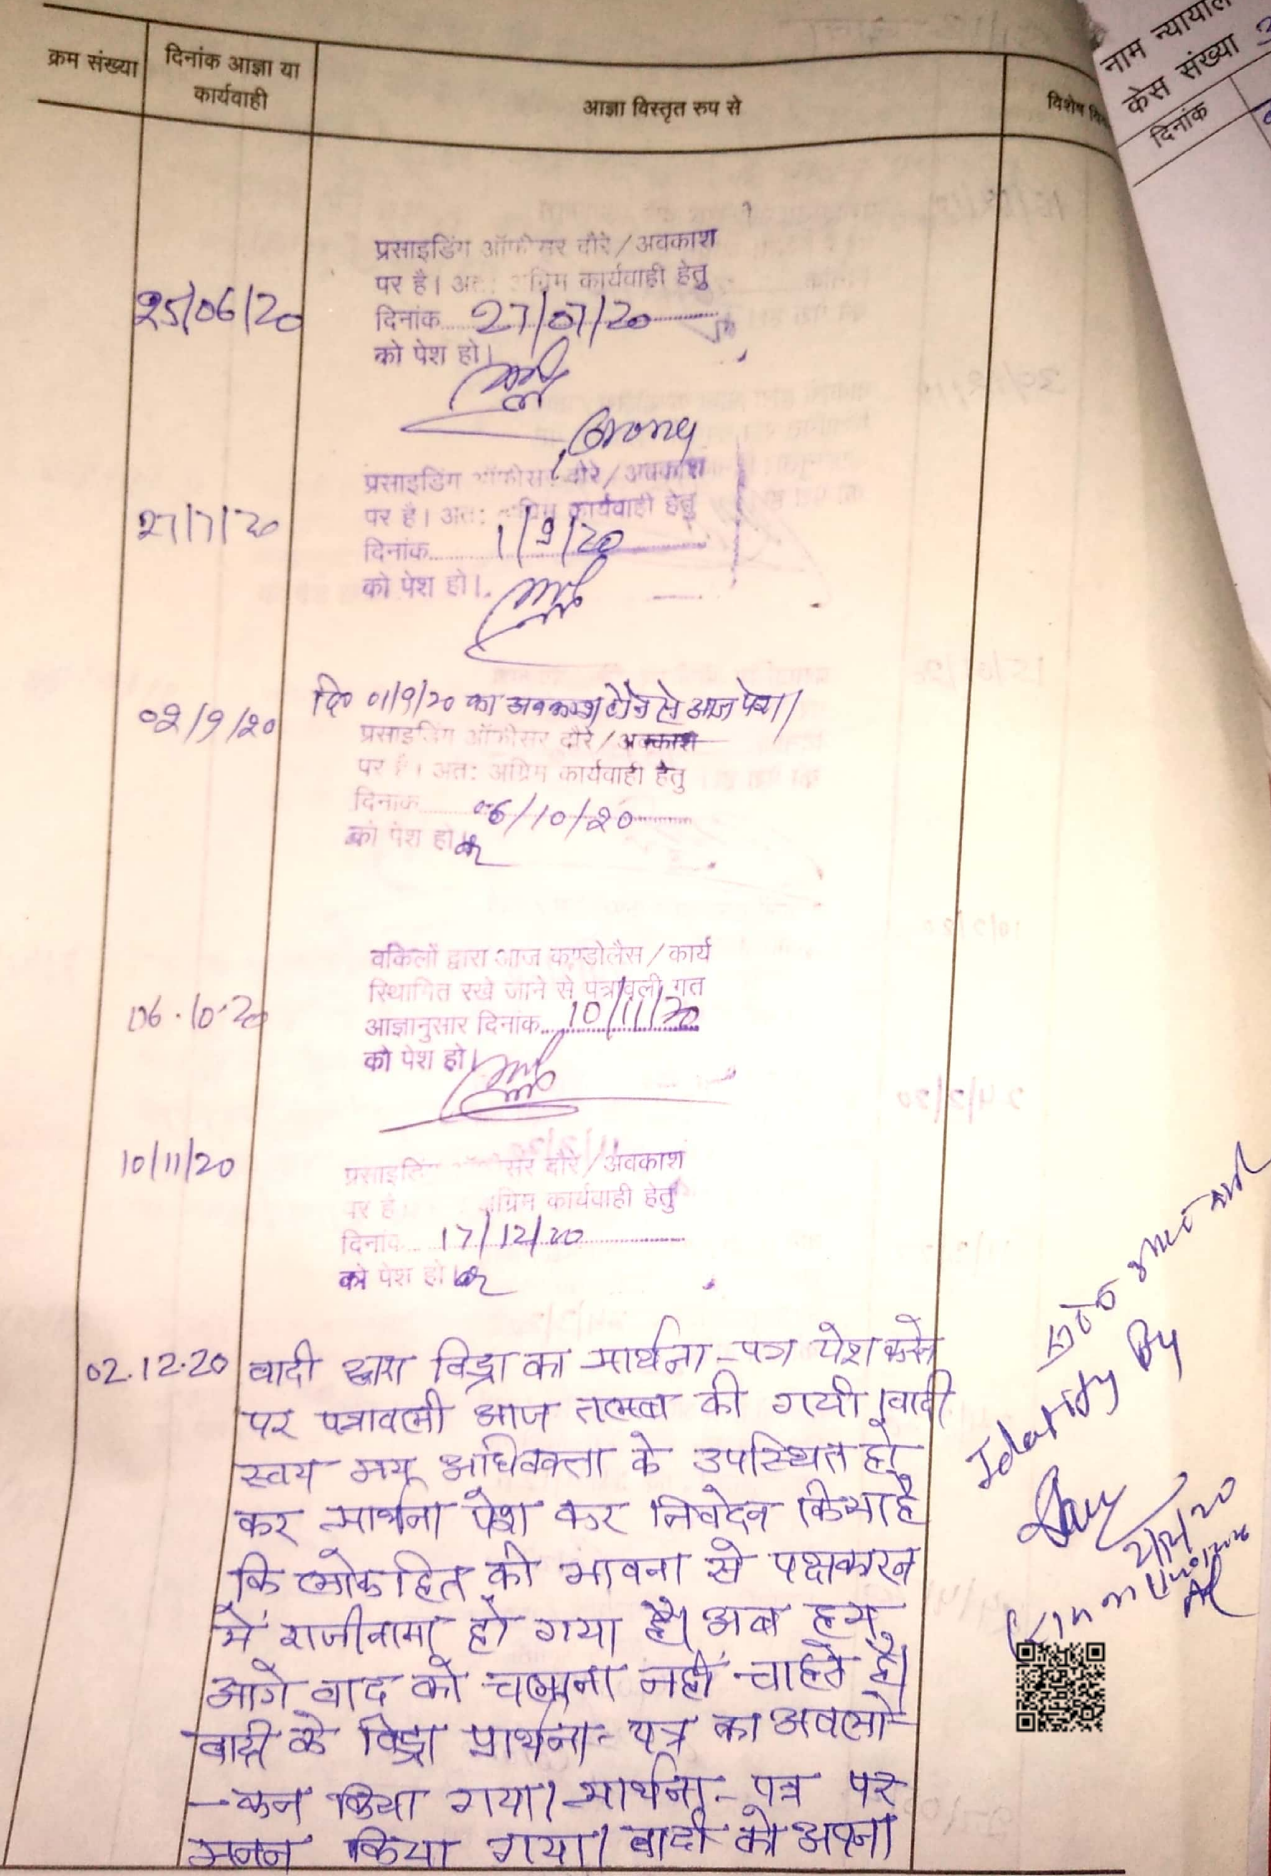 क्रम संख्या
दिनांक आज्ञा या
कार्यवाही
आज्ञा विस्तृत रुप से
विशेष
नाम न्यायाल
केस संख्या
दिनांक
25/06/20
प्रसाइडिंग ऑफीसर दौरे/अवकाश
पर है। अतः अग्रिम कार्यवाही हेतु
दिनांक 27/07/20
को पेश हो।
27/7/20
प्रसाइडिंग ऑफीसर दौरे/अवकाश
पर है। अतः अग्रिम कार्यवाही हेतु
दिनांक 1/9/20
को पेश हो।
02/9/20
दि० 01/9/20 का अवकाश होने से आज पेश।
प्रसाइडिंग ऑफीसर दौरे/अवकाश
पर है। अतः अग्रिम कार्यवाही हेतु
दिनांक 06/10/20
को पेश हो
06.10.20
वकिलों द्वारा आज कण्डोलैस/कार्य
स्थिागित रखे जाने से पत्रावली गत
आज्ञानुसार दिनांक 10/11/20
को पेश हो।
10/11/20
प्रसाइडिंग ऑफीसर दौरे/अवकाश
पर है अग्रिम कार्यवाही हेतु
दिनांक 17/12/20
को पेश हो
02.12.20 वादी द्वारा विड्रा का प्रार्थना-पत्र पेश करने
पर पत्रावली आज तलब की गयी। वादी
स्वयं मय अधिवक्ता के उपस्थित हो
कर प्रार्थना पेश कर निवेदन किया है
कि लोकहित की भावना से पक्षकारान
में राजीनामा हो गया है। अब हम
आगे वाद को चलाना नहीं चाहते है।
वादी के विड्रा प्रार्थना-पत्र का अवलो-
-कन किया गया। प्रार्थना-पत्र पर
मनन किया गया। वादी को अपना
Identify By